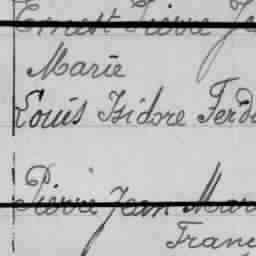 Ernest Pierre Je
Marie
Louis Isidore Ferd
Pierre Jean Mar
Franç